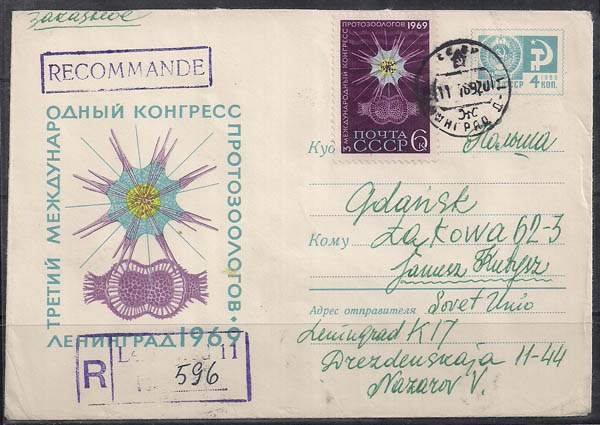 заказное
RECOMMANDE
ТРЕТИЙ МЕЖДУНАРОДНЫЙ КОНГРЕСС ПРОТОЗООЛОГОВ •
ЛЕНИНГРАД 1969
R
11
596
3 МЕЖДУНАРОДНЫЙ КОНГРЕСС ПРОТОЗООЛОГОВ 1969
ПОЧТА
СССР 6к
СССР 4 КОП.
Куда
Польша
Gdańsk
Кому
Łąkowa 62-3
Janusz
Адрес отправителя
Sovet Unio
Leningrad K17
Drezdenskaja 11-44
Nazarov V.